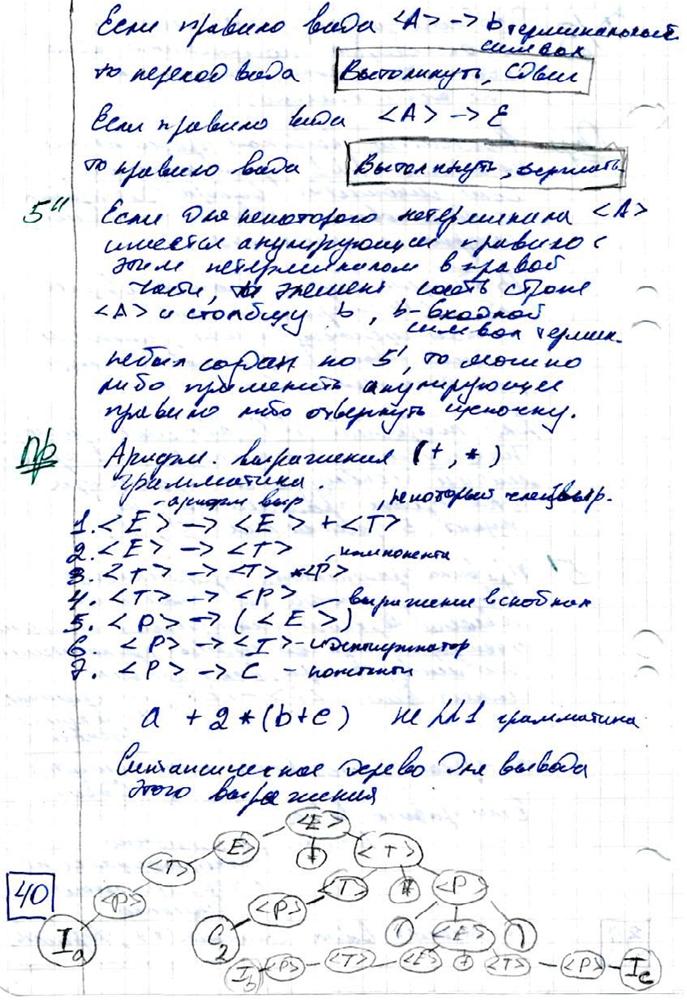 Если правило вида <A> -> b терминальный
символ
то переход вида Вытолкнуть, Сдвиг
Если правило вида <A> -> ε
то правило вида Вытолкнуть, держать
5" Если для некоторого нетерминала <A>
имеется анулирующее правило с
этим нетерминалом в правой
части, и элемент соотв строке
<A> и столбцу b, b - входной
символ термин.
небыл создан по 5', то можно
либо применить анулирующее
правило либо отвергнуть цепочку.
Пр Арифм. выражения (+, *)
грамматика.
- арифм выр , некоторый член выр.
1. <E> -> <E> + <T>
2. <E> -> <T> , компонента
3. <T> -> <T> * <P>
4. <T> -> <P> - выражение в скобках
5. <P> -> (<E>)
6. <P> -> <I> - идентификатор
7. <P> -> C - константа
a + 2 * (b+c) не LL1 грамматика
Синтаксическое дерево для вывода
этого выражения
<E>
<E> + <T>
<T> <T> * <P>
40 <P> <P> ( <E> )
I a C 2
I b <P> <T> <E> + <T> <P> I c